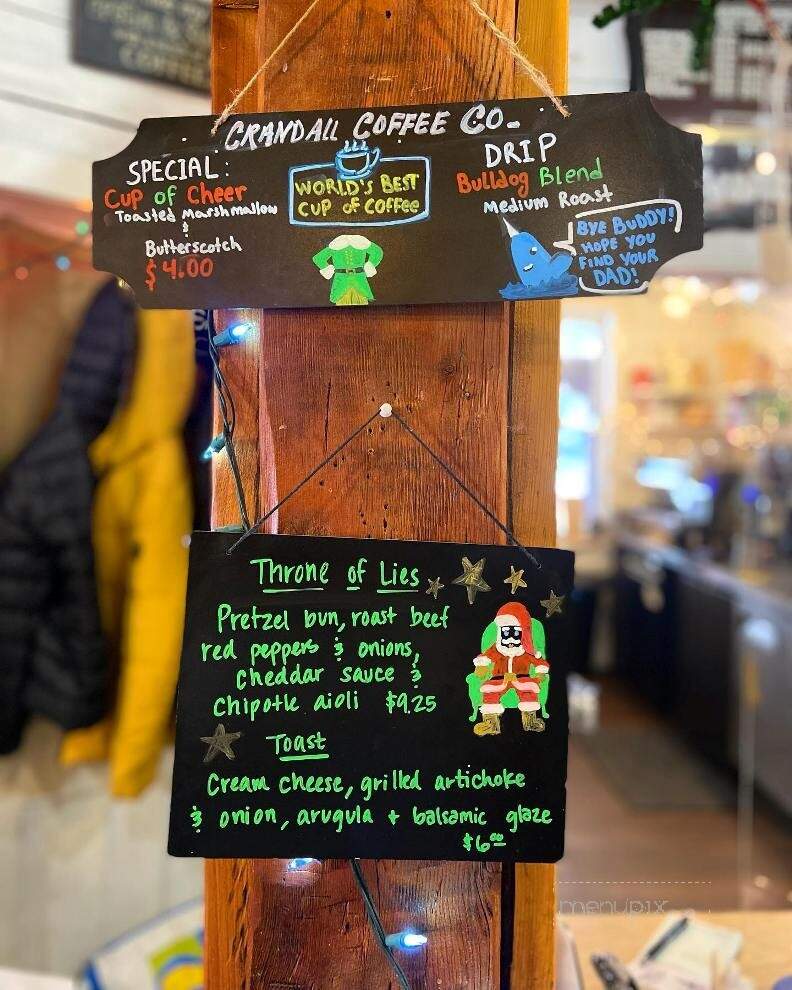 CRANDALL COFFEE CO.
SPECIAL:
Cup of Cheer
Toasted Marshmallow
&
Butterscotch
$4.00
WORLD'S BEST
CUP OF COFFEE
DRIP
Bulldog Blend
Medium Roast
BYE BUDDY!
HOPE YOU
FIND YOUR
DAD!
Throne of Lies
Pretzel bun, roast beef
red peppers & onions,
cheddar sauce &
chipotle aioli $9.25
Toast
Cream cheese, grilled artichoke
& onion, arugula + balsamic glaze
$6.00
menupix